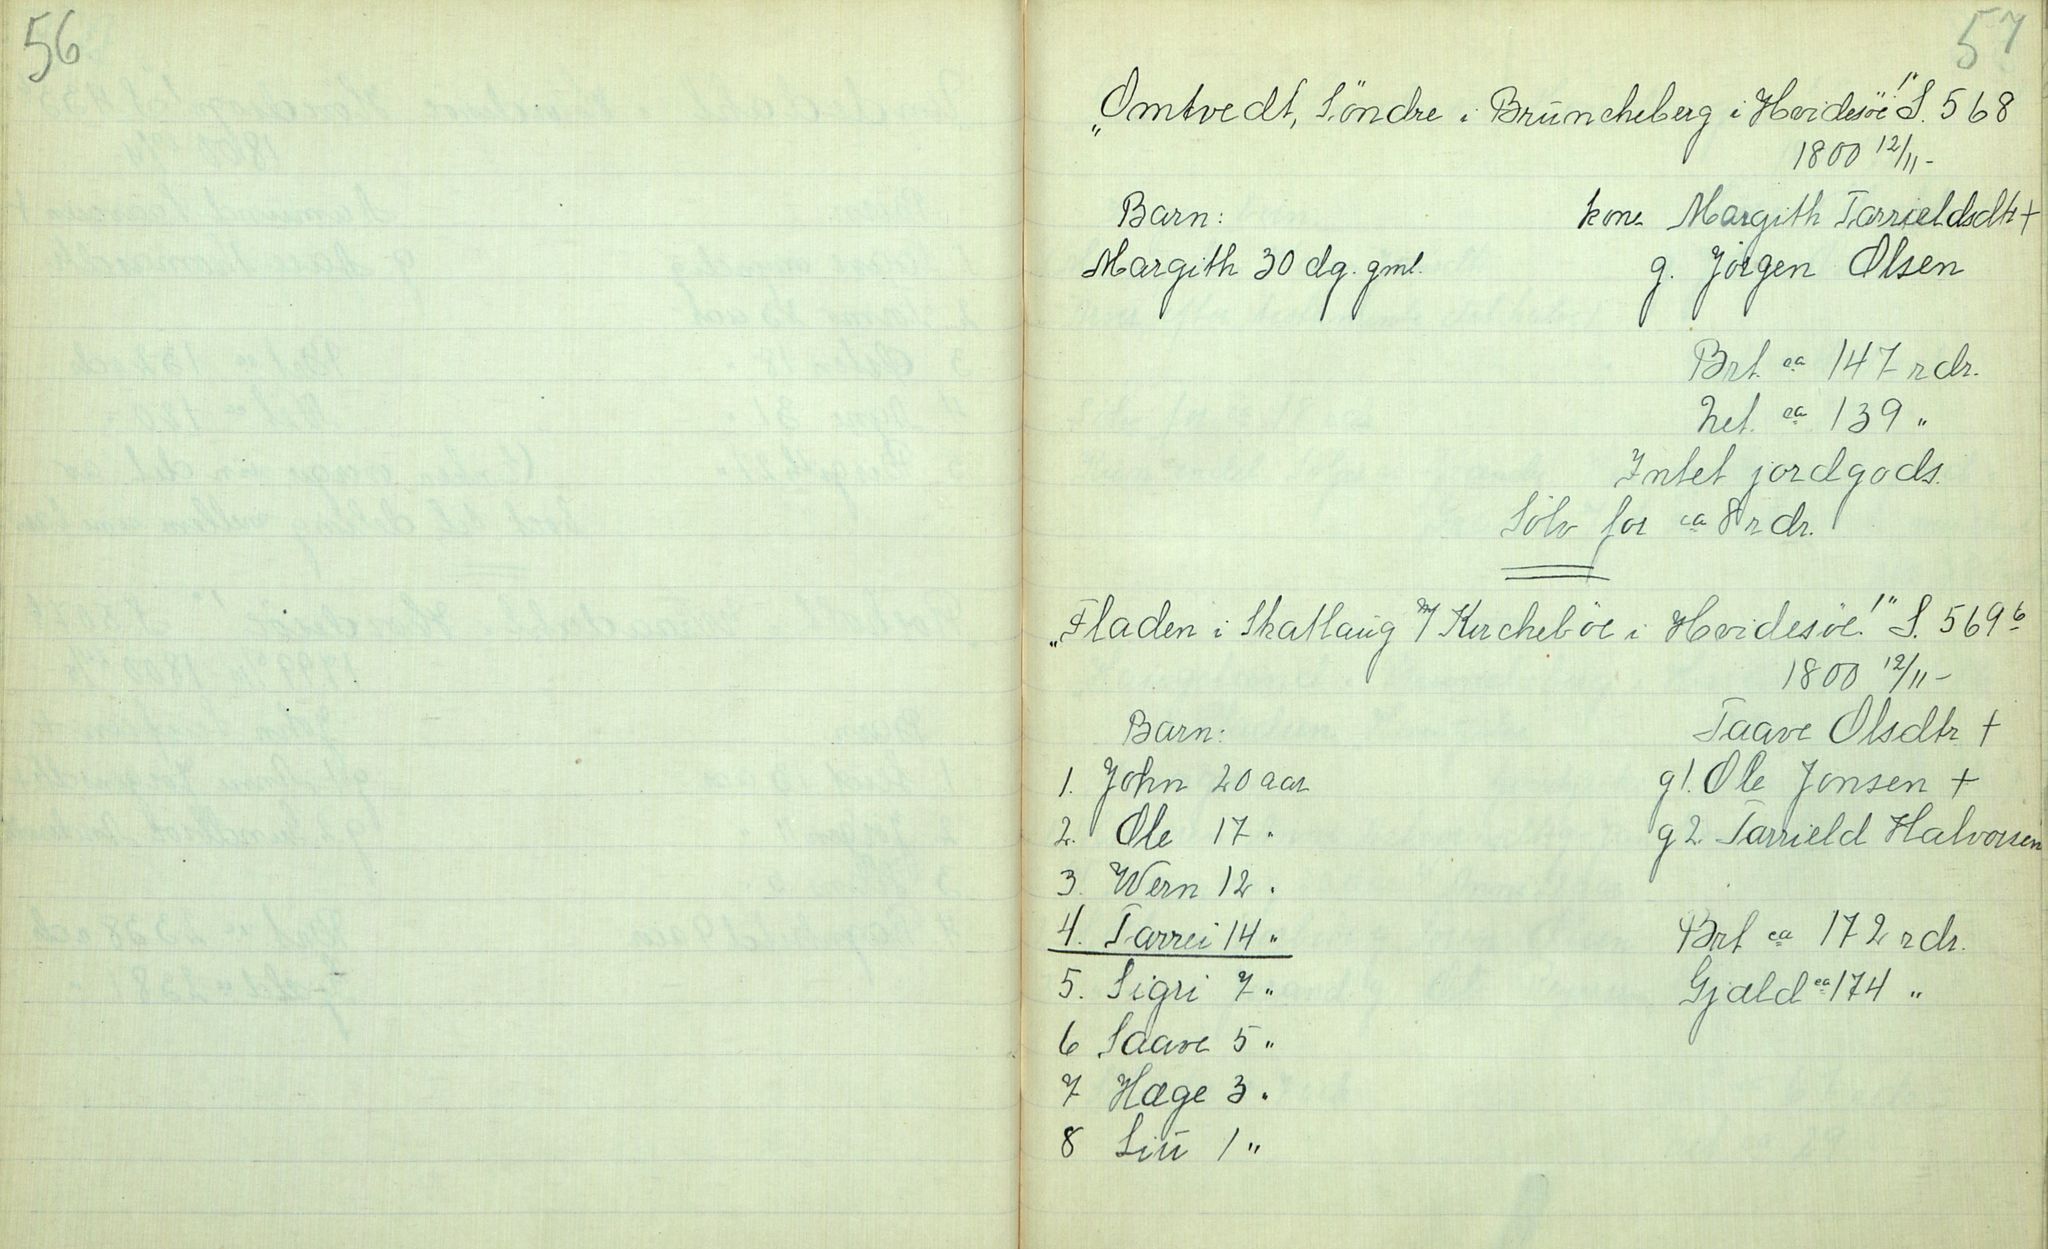 56
57
"Omtvedt, Söndre i Brūncheberg i Hvidesöe!" S. 568
1800 12/11 -
Barn: kone Margith Tarrieldsdtr +
Margith 30 dg. gml. g. Jørgen Olsen
Brt. ca 147 rdr.
Net. ca 139 "
Intet jordgods.
Sölv for ca 8 rdr.
"Fladen i Skatlaūg m/ Kirchebøe i Hvidesöe!" S. 569b
1800 12/11 -
Barn: Taave Olsdtr +
1. John 20 aar g 1. Ole Jonsen +
2. Ole 17 " g 2 Tarrield Halvorsen
3. Wern 12 "
4. Tarrei 14 " Brt ca 172 rdr.
5. Sigri 7 " Gjæld ca 174 "
6 Saave 5 "
7 Hæge 3 "
8 Liū 1 "